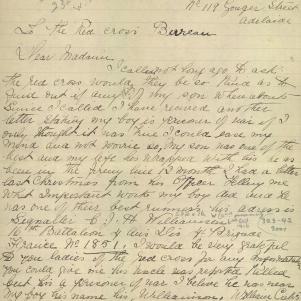 No 119 Gouger Street
Adelaide
23rd
To the Red Cross Bureau
Dear Madam
I called not long ago to ask
the Red Cross would they be so kind as to
find out if any of my son whereabouts
Since I called I have received another
letter stating my boy is prisoner of war if I
only thought it was true I could ease my
mind and not worrie so, my son was one of the
best and my life his wrapped with his he as
been in the army 13 month I had a letter
last Christmas from his Officer telling me
what important work my boy did and he
was one of their best runners his adress
Signaller C. J. H Williamson
16th Battalion 4 Aus Div 4 Brigade
France No 1851, I would be very grateful
to you ladies of the red cross for any information
you could give me his uncle was reported killed
but his a prisoner of war I believe he was near
my boy his name his Williamson